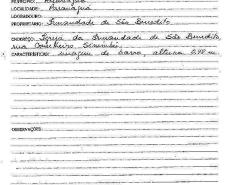 MUNICÍPIO: Araruama
LOCALIDADE: Araruama
LOGRADOURO:
PROPRIETÁRIO: Irmandade de São Benedito
ENDEREÇO: Igreja da Irmandade de São Benedito,
rua Conselheiro Sinimbú.
CARACTERÍSTICAS: imagem de barro, altura 0,48 m
OBSERVAÇÕES: